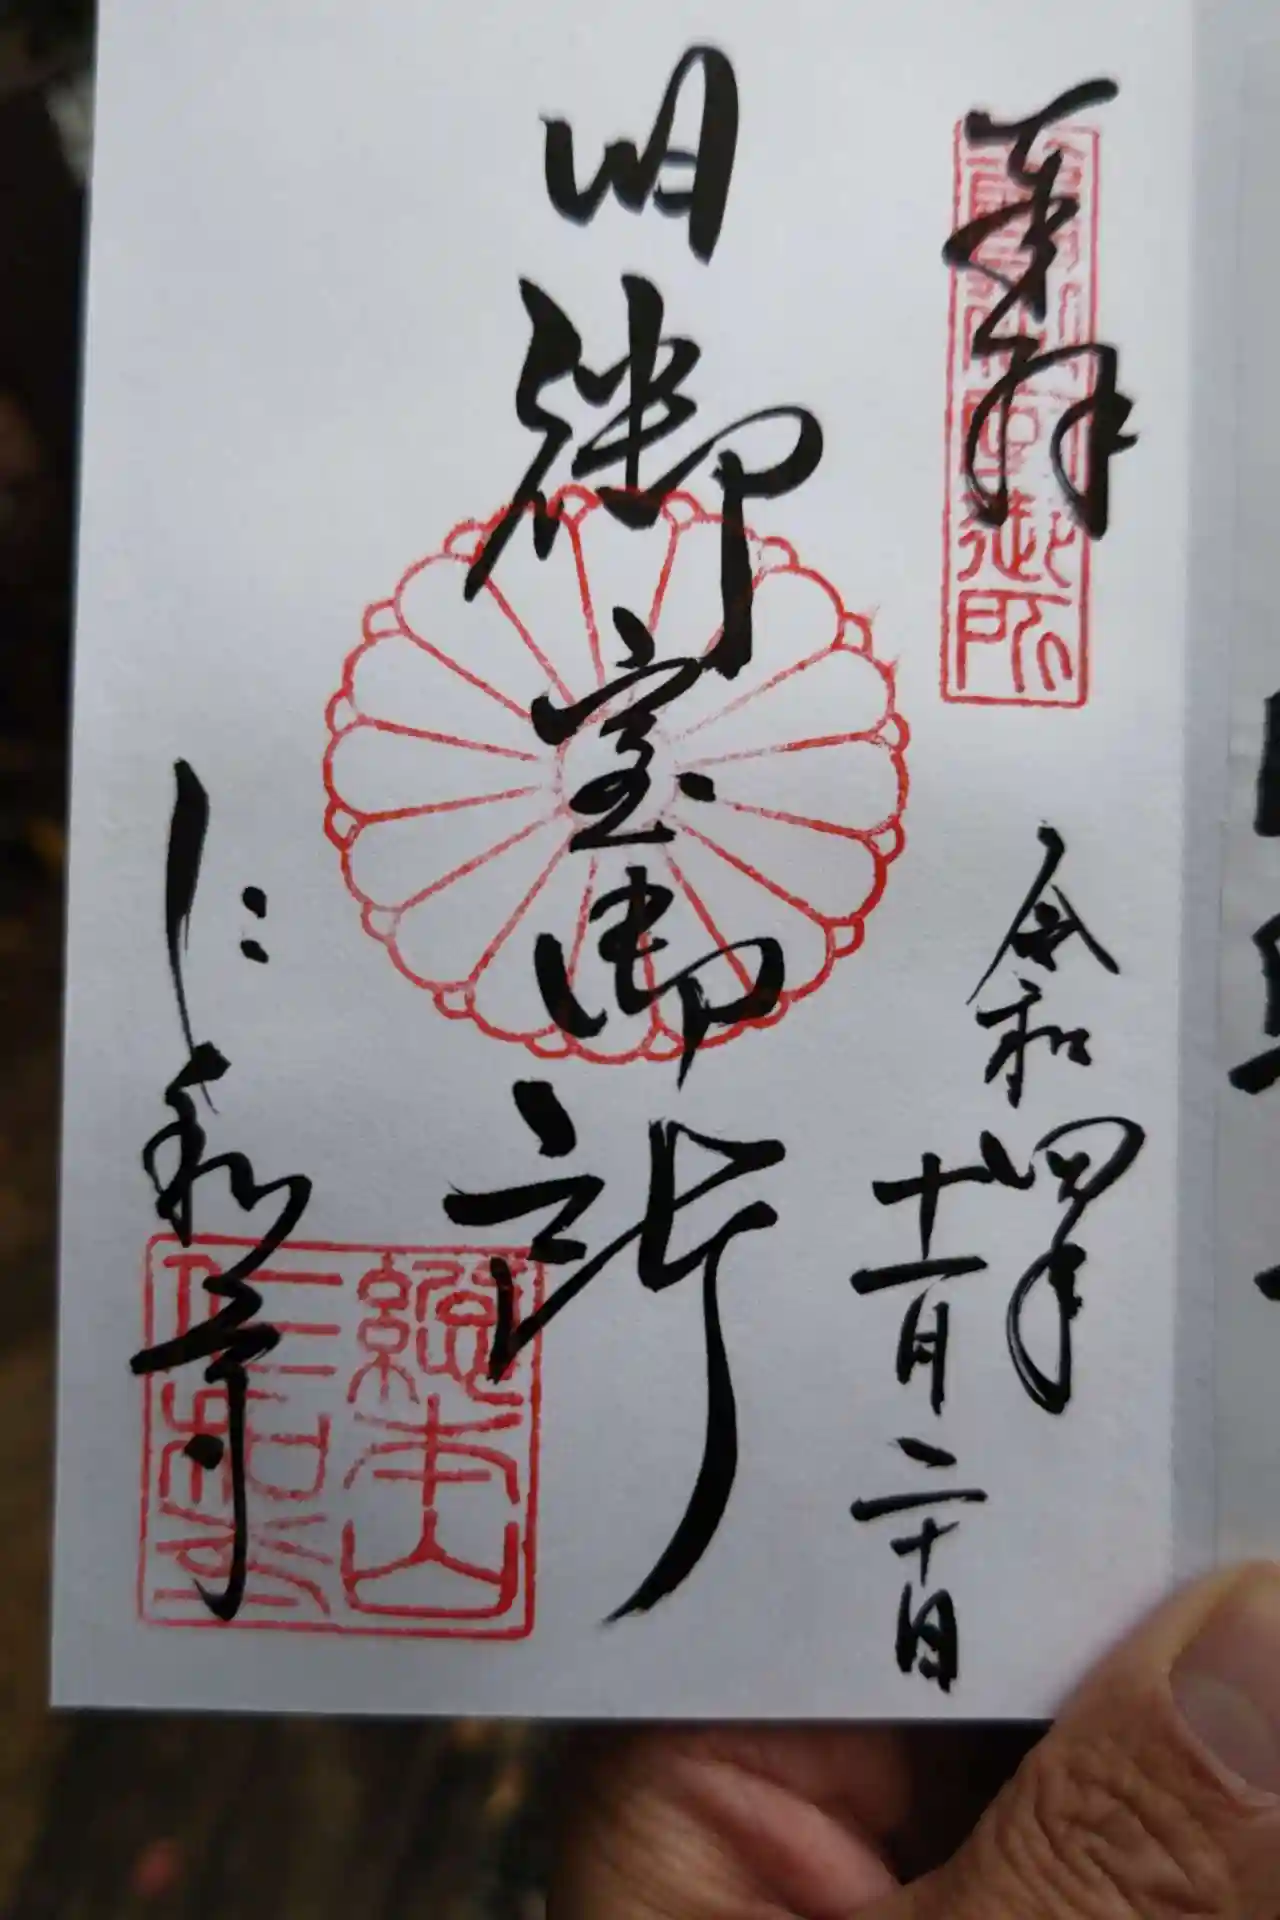 奉拝
令和四年
十一月二十日
旧御室御所
仁和寺
總本山
仁和寺